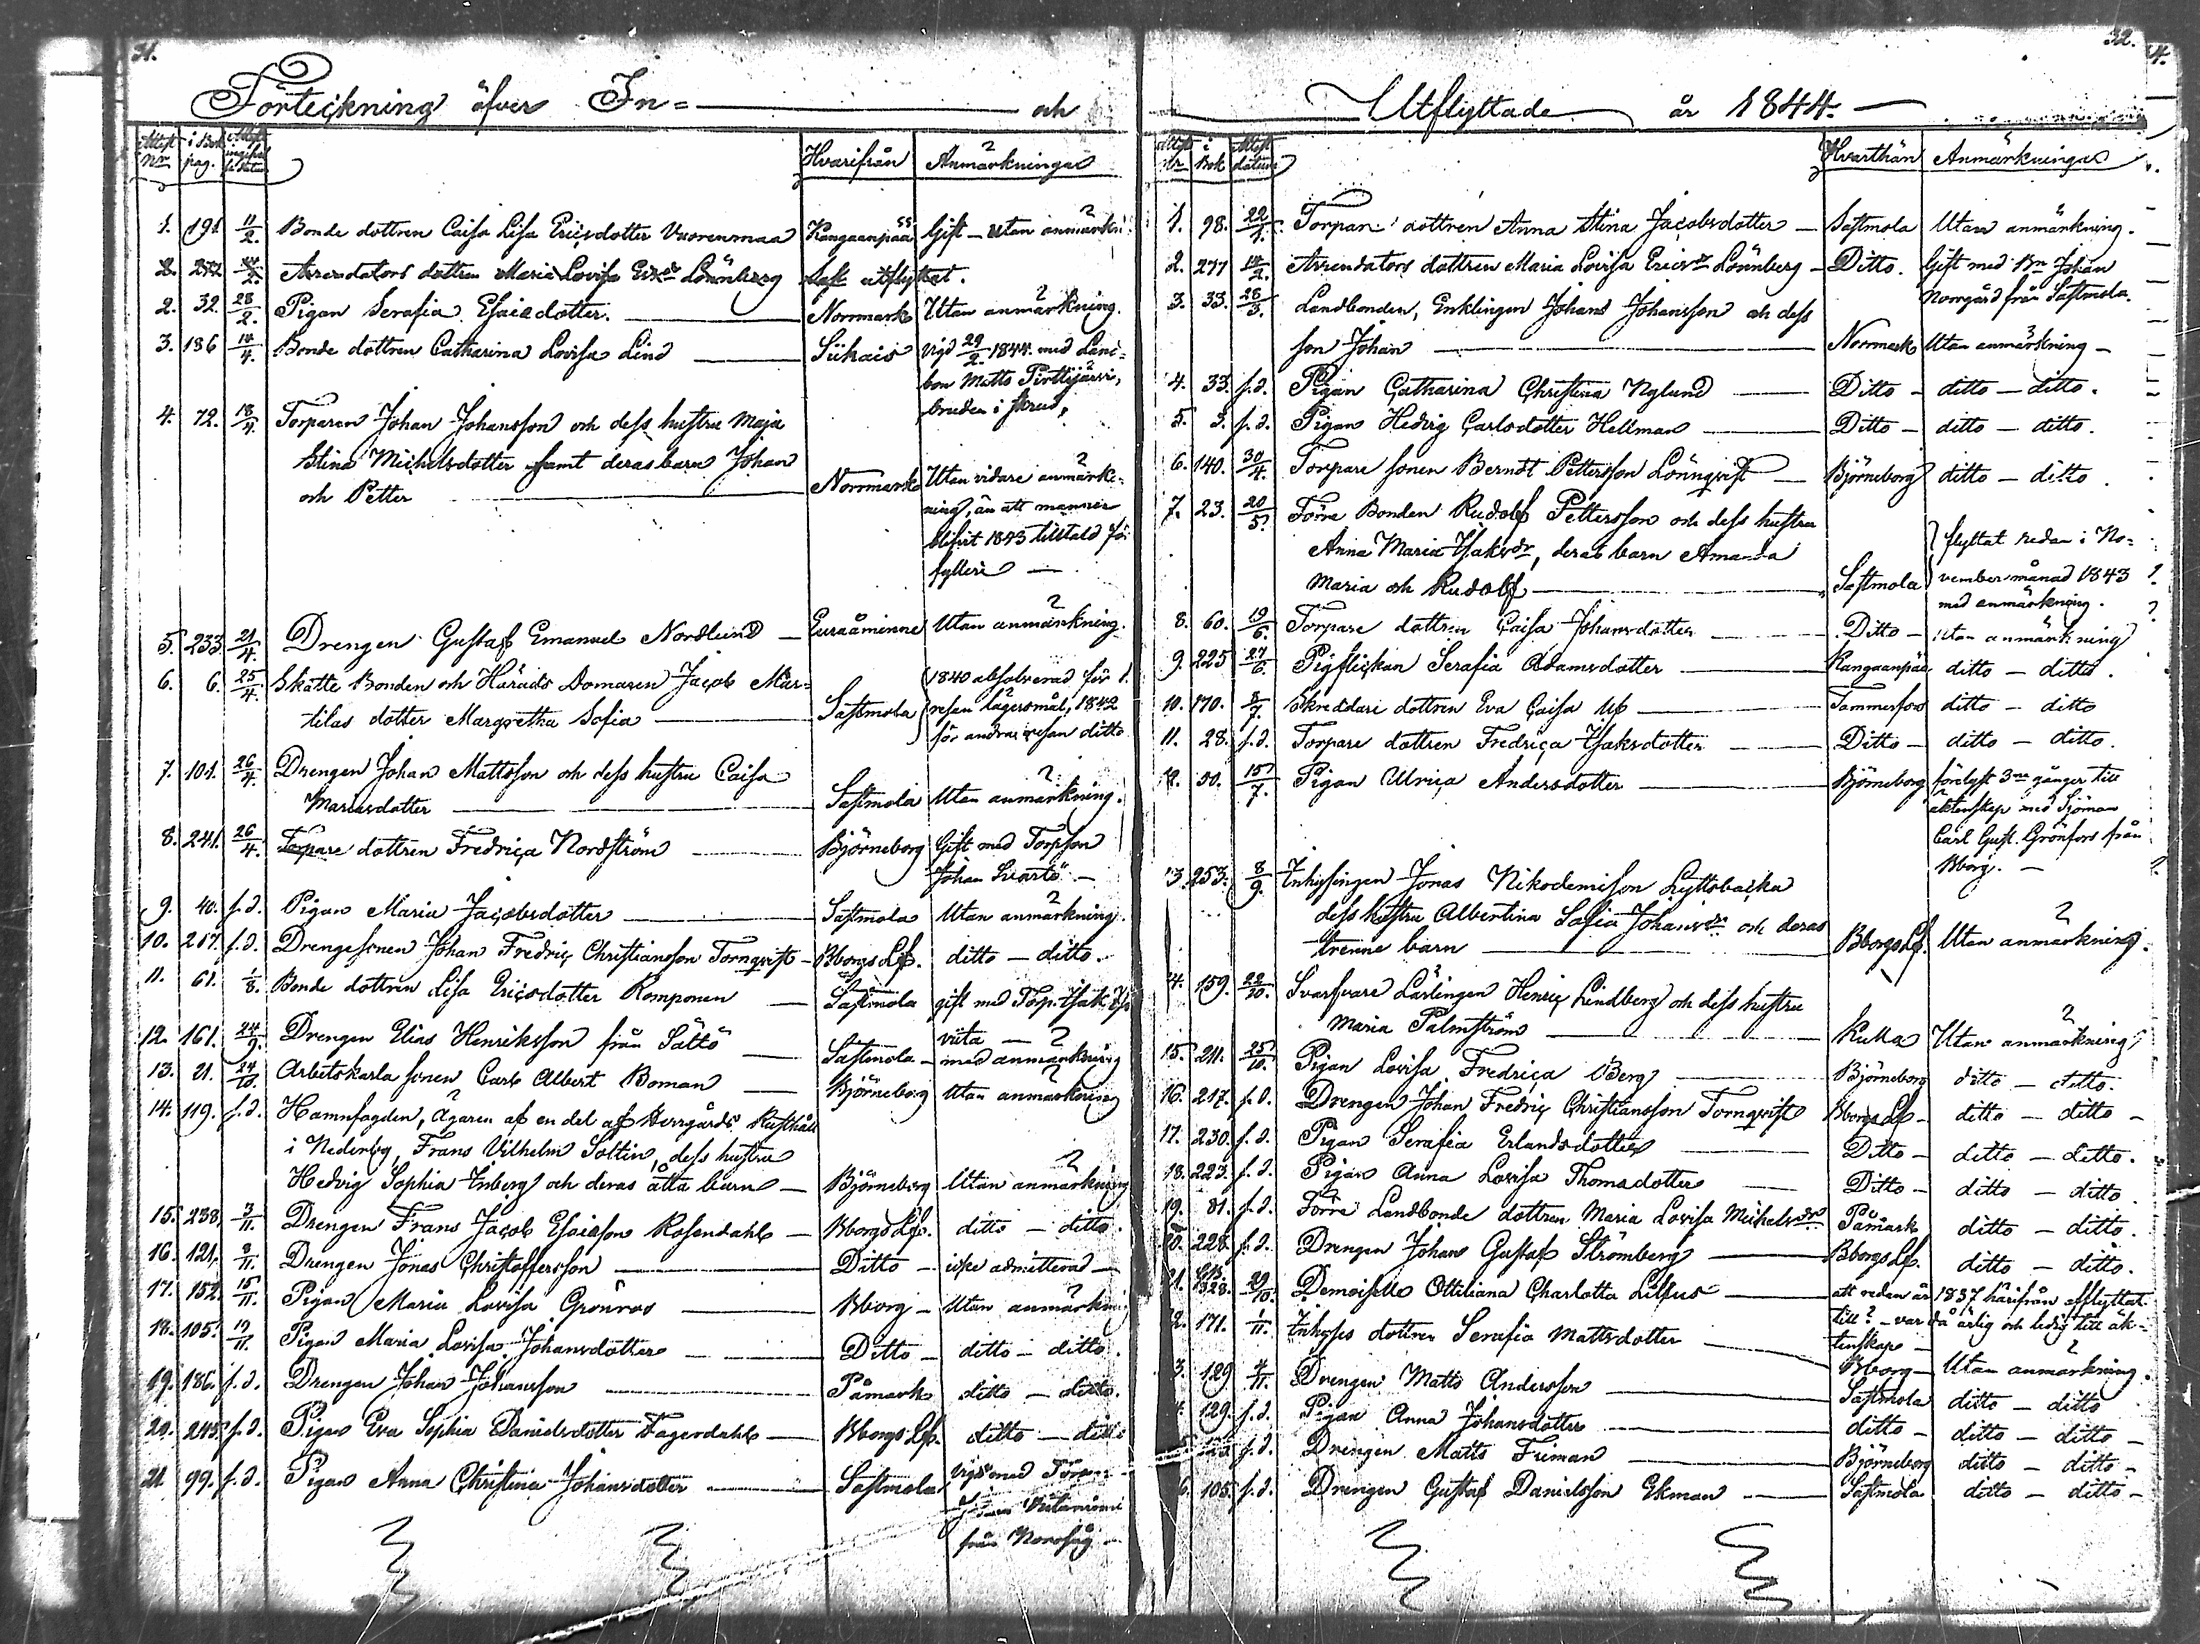 31.
Förteckning öfver In= och
Attest Nr. i Bok pag. Hvarifrån Anmärkningar
1. 191. 11/2. Bonde dottren Caisa Lisa Ericsdotter Vuorenmaa Kangaanpää Gift – utan anmärkn:
2. 277 14/2. Arrendators dottren Maria Lovisa Ericsdr Lönnberg utflyttat.
2. 32. 28/2. Pigan Serafia Esaiædotter. Norrmark Utan anmärkning.
3. 186 14/4. Bonde dottren Catharina Lovisa Lind Siikais vigd 29/2 1844. med Land-
bon Matts Pirttijärvi,
bruden i skrud,
4. 72. 18/4. Torparen Johan Johansson och dess hustru Maja
Stina Michelsdotter samt deras barn Johan
och Petter Norrmark Utan vidare anmärk-
ning, än att mannen
blifvit 1843 tilltald för
fylleri —
5. 233. 21/4. Drengen Gustaf Emanuel Nordlund Euraåminne Utan anmärkning.
6. 6. 25/4. Skatte Bonden och Härads Domaren Jacob Mär-
tilas dotter Margretha Sofia Sastmola 1840 absolverad för 1.
resan lägersmål, 1842
för andra resan ditto
7. 101. 26/4. Drengen Johan Mattsson och dess hustru Caisa
Mariasdotter Sastmola Utan anmärkning.
8. 241. 26/4. Torpare dottren Fredrica Nordström Björneborg Gift med Torpson
Johan Svartö –
9. 40. s.d. Pigan Maria Jacobsdotter Sastmola Utan anmärkning.
10. 217. s.d. Drengesonen Johan Fredric Christiansson Tornqvist Bborgs Lfs. ditto – ditto.
11. 61. 1/8. Bonde dottren Lisa Ericsdotter Komponen Sastmola gift med Torp. Isak
12. 161. 24/9. Drengen Elias Henriksson från Sältö Sastmola – med anmärkning
13. 21. 24/10. Arbetskarls sonen Carl Albert Boman Björneborg Utan anmärkning
14. 119. s.d. Hamnfogden, Ägaren af en del af Herrgårds Rusthåll
i Nederby, Frans Vilhelm Soltin, dess hustru
Hedvig Sophia Inberg och deras åtta barn – Björneborg Utan anmärkning
15. 238. 3/11. Drengen Frans Jacob Esaiasson Rosendahl Bborgs Lfs. ditto – ditto.
16. 121. 8/11. Drengen Jonas Christoffersson Ditto – icke admitterad
17. 152. 15/11. Pigan Maria Lovisa Grönroos Bborg – Utan anmärkning
18. 105. 19/11. Pigan Maria Lovisa Johansdotter Ditto – ditto – ditto.
19. 186. s.d. Drengen Johan Johansson Påmark ditto – ditto.
20. 245. s.d. Pigan Eva Sophia Danielsdotter Fagerdahl Bborgs Lfs. ditto – ditto
21 99. s.d. Pigan Anna Christina Johansdotter Sastmola vigd med
från Norrsåg –
32.
Utflyttade år 1844.
Attest Nr i Bok Attest datum Hvarthän Anmärkningar
1. 98. 22/1. Torpar dottren Anna Stina Jacobsdotter – Sastmola Utan anmärkning.
2. 277 14/2. Arrendators dottren Maria Lovisa Ericsdr Lönnberg – Ditto. Gift med Bn Johan
Norrgård från Sastmola.
3. 33. 28/3. Landbonden, Enklingen Johan Johansson och dess
son Johan Norrmark Utan anmärkning –
4. 33. s.d. Pigan Catharina Christina Nylund Ditto – ditto – ditto.
5. 3. s.d. Pigan Hedvig Carlsdotter Hellman Ditto – ditto – ditto.
6. 140. 30/4. Torpare sonen Berndt Pettersson Lönnqvist Björneborg ditto – ditto.
7. 23. 20/5. Förra Bonden Rudolf Pettersson och dess hustru
Anna Maria Isaksdr, deras barn Amanda
Maria och Rudolf Sastmola flyttat redan i No-
vember månad 1843
med anmärkning.
8. 60. 19/6. Torpare dottren Caisa Johansdotter Ditto – utan anmärkning
9. 225 27/6. Pigflickan Serafia Adamsdotter Kangaanpää ditto – ditto.
10. 170. 8/7. Skreddare dottren Eva Caisa Uf Tammerfors ditto – ditto
11. 28. s.d. Torpare dottren Fredrica Isaksdotter Ditto – ditto – ditto.
12. 50. 15/7. Pigan Ulrica Andersdotter Björneborg förelyst 3ne gånger till
äktenskap med Sjöman
Carl Gust. Grönfors från
Bborg. –
13. 253. 8/9. Inhysingen Jonas Nikodemisson Lyttbacka
dess hustru Albertina Sofia Johansdr och deras
trenne barn Bborgs Lfs. Utan anmärkning.
4. 159. 22/10. Svarfvare Lärlingen Henric Lindberg och dess hustru
Maria Palmström Kulla Utan anmärkning
15. 211. 25/10. Pigan Lovisa Fredrica Berg Björneborg ditto – ditto.
16. 217. s.d. Drengen Johan Fredric Christiansson Tornqvist Bborgs Lfs – ditto – ditto –
17. 230. s.d. Pigan Serafia Erlandsdotter Ditto – ditto – ditto.
18. 223. s.d. Pigan Anna Lovisa Thomasdotter Ditto – ditto – ditto.
19. 81. s.d. Förra Landbonde dottren Maria Lovisa Michelsdr Påmark ditto – ditto.
20. 228. s.d. Drengen Johan Gustaf Strömberg Bborgs Lfs. ditto – ditto.
21. 29/10. Demoiselle Ottiliana Charlotta Lilius att redan år 1837 härifrån afflyttat
till? – var då ärlig och ledig till äk-
tenskap –
2. 171. 1/11. Inhyses dottren Serafia Mattsdotter Bborg – Utan anmärkning.
3. 129 4/11. Drengen Matts Andersson Sastmola ditto – ditto
4. 129. s.d. Pigan Anna Johansdotter ditto – ditto – ditto –
s.d. Drengen Matts Friman Björneborg ditto – ditto –
6. 105. s.d. Drengen Gustaf Danielsson Ekman Sastmola ditto – ditto –